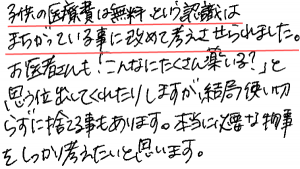 子供の医療費は無料という認識は
まちがっている事に改めて考えさせられました。
お医者さんも「こんなにたくさん薬いる?」と
思う位出してくれたりしますが、結局使い切
らずに捨てる事もあります。本当に必要な物事
をしっかり考えたいと思います。